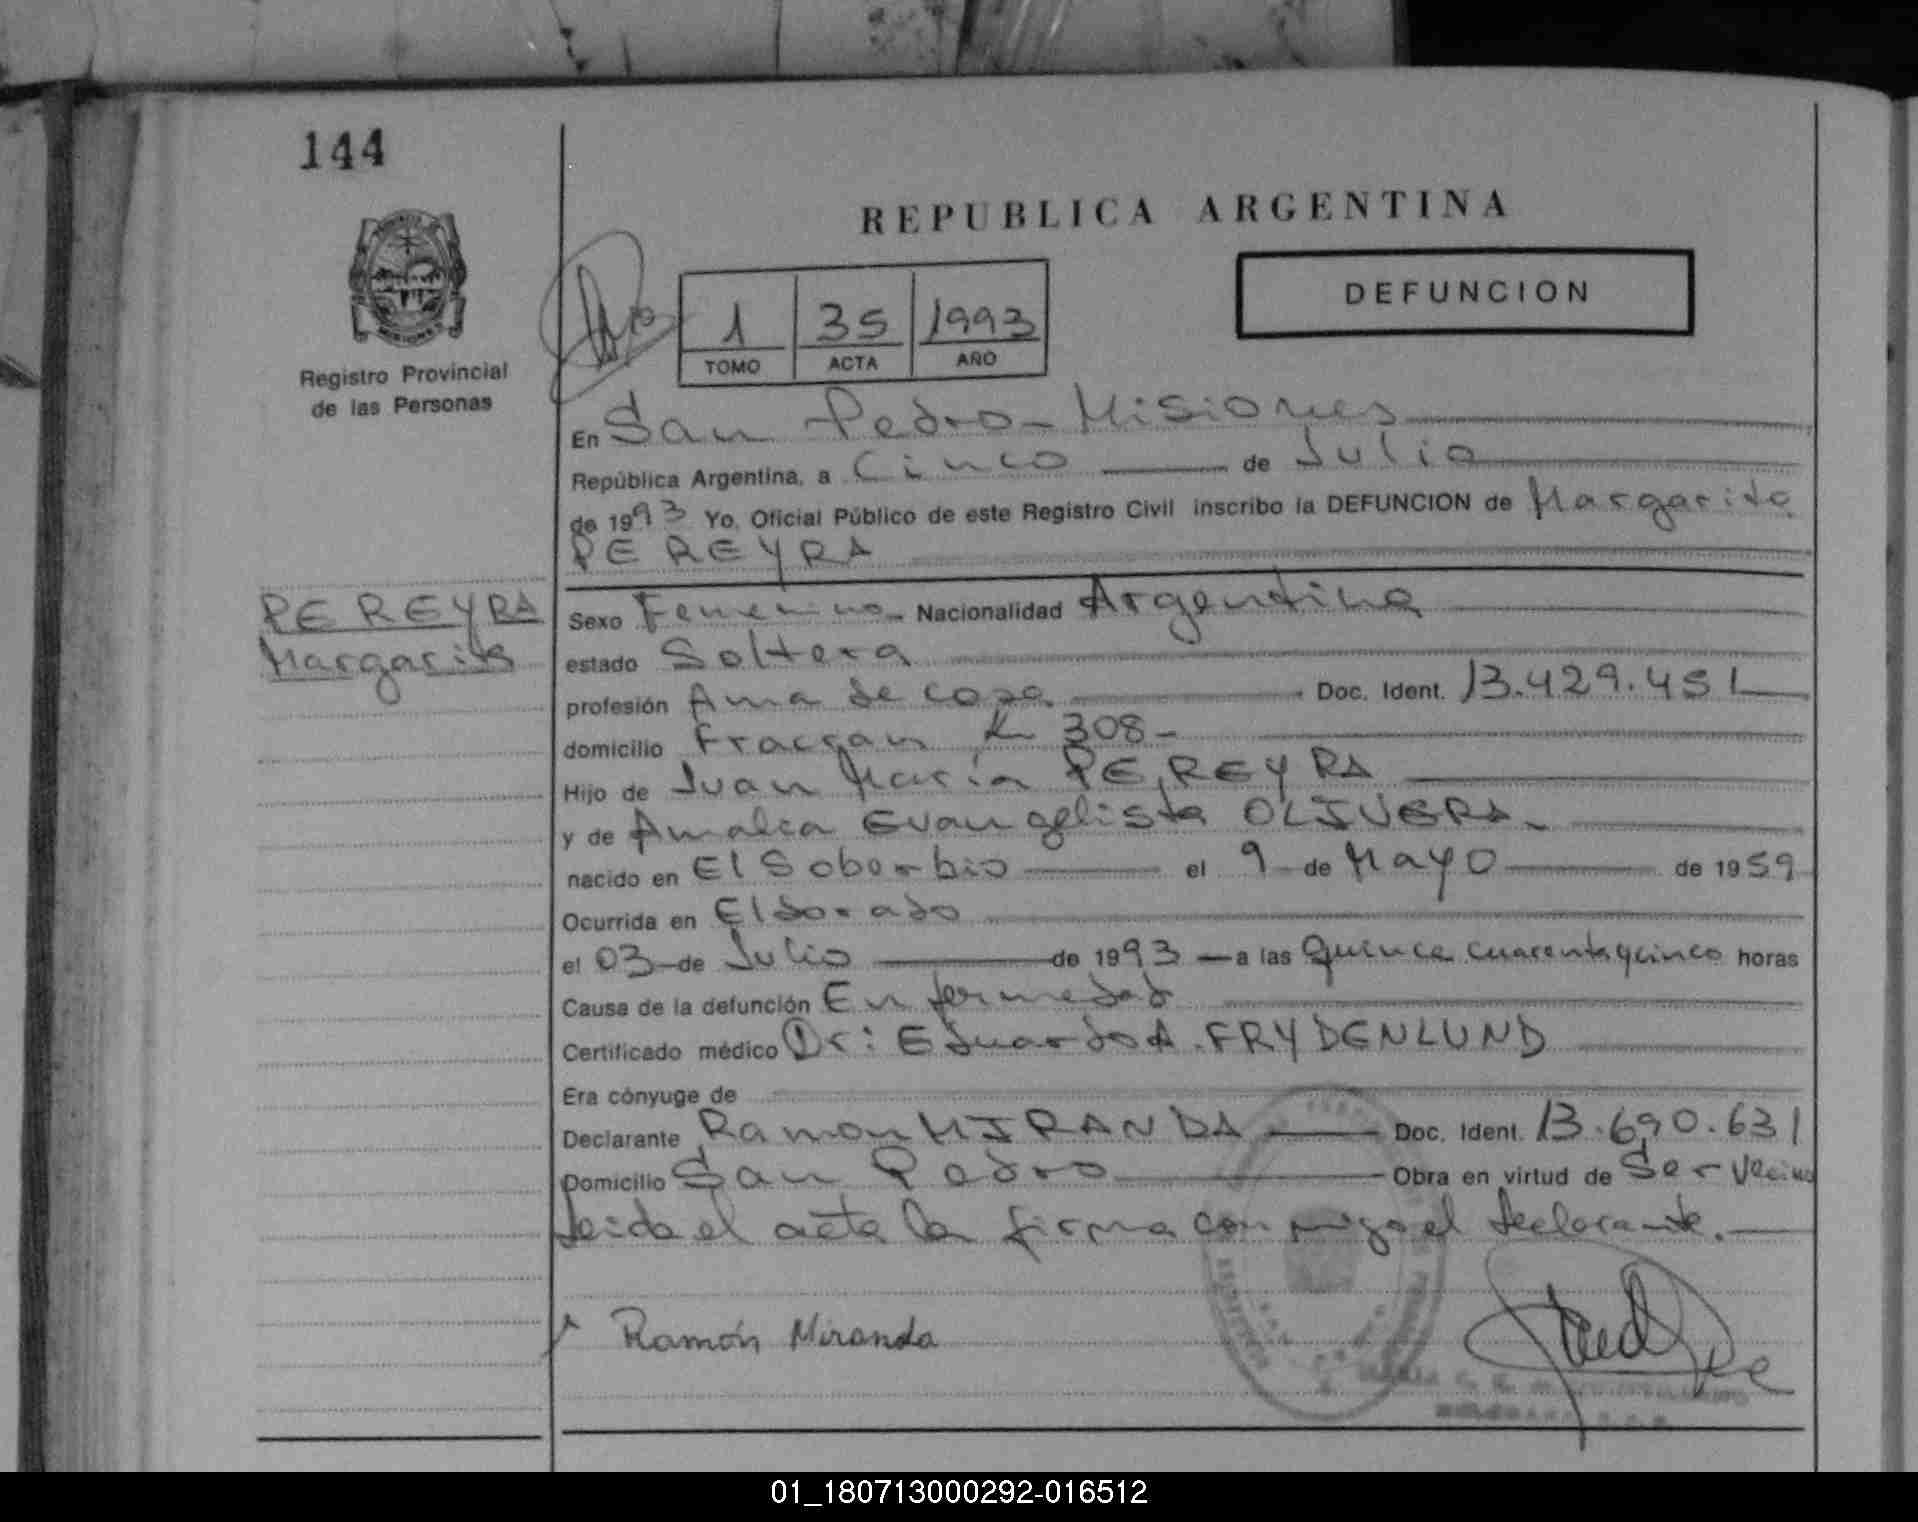 144
REPUBLICA ARGENTINA
DEFUNCION
1 35 1993
TOMO ACTA AÑO
Registro Provincial
de las Personas
En San Pedro - Misiones
República Argentina, a Cinco de Julio
de 1993 Yo, Oficial Público de este Registro Civil inscribo la DEFUNCION de Margarita
PEREYRA
PEREYRA
Margarita
Sexo Femenino - Nacionalidad Argentina
estado Soltera
profesión Ama de casa Doc. Ident. 13.429.451
domicilio Fracran K 308 -
Hijo de Juan María PEREYRA
y de Amalia Evangelista OLIVERA -
nacido en El Soberbio el 9 de Mayo de 1959
Ocurrida en Eldorado
el 03 de Julio de 1993 a las Quince cuarenta y cinco horas
Causa de la defunción Enfermedad
Certificado médico Dr: Eduardo A. FRYDENLUND
Era cónyuge de
Declarante Ramon MIRANDA Doc. Ident. 13.690.631
Domicilio San Pedro Obra en virtud de Ser Vecino
Leida el acta la firma con migo el declarante.
Ramón Miranda
01_180713000292-016512